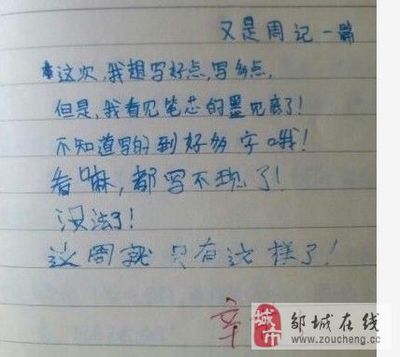 又是周记一篇
这次,我想写好点,写多点,
但是,我看见笔芯的墨见底了!
不知道写的到好多字哦!
看嘛,都写不现了!
没法了!
这周就只有这样了!
城市
邹城在线
www.zoucheng.cc